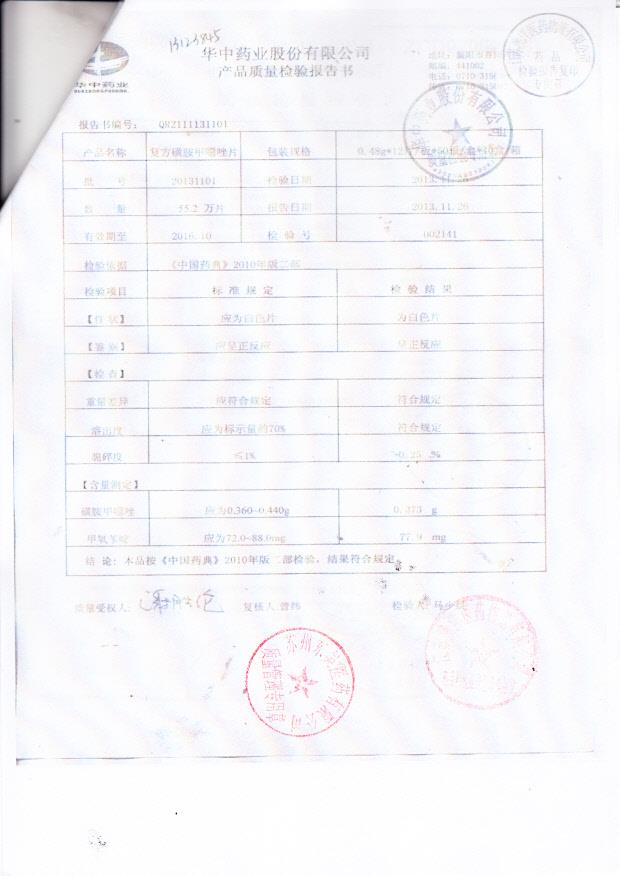 13123845
华中药业
华中药业股份有限公司
产品质量检验报告书
邮编: 441002
报告书编号: QR2111131101
产品名称 复方磺胺甲噁唑片 包装规格
批 号 20131101 检验日期 2013.11.26
数 量 55.2 万片 报告日期 2013.11.26
有效期至 2016.10 检 验 号 002141
检验依据 《中国药典》2010年版二部
检验项目 标 准 规 定 检 验 结 果
【性 状】 应为白色片 为白色片
【鉴 别】 应呈正反应 呈正反应
【检 查】
重量差异 应符合规定 符合规定
溶出度 应为标示量的70% 符合规定
脆碎度 ≤1% 0.25 %
【含量测定】
磺胺甲噁唑 应为0.360~0.440g 0.373 g
甲氧苄啶 应为72.0~88.0mg 77.9 mg
结 论: 本品按《中国药典》2010年版二部检验，结果符合规定
质量受权人: 复核人: 曾纬 检验人:
质量管理专用章